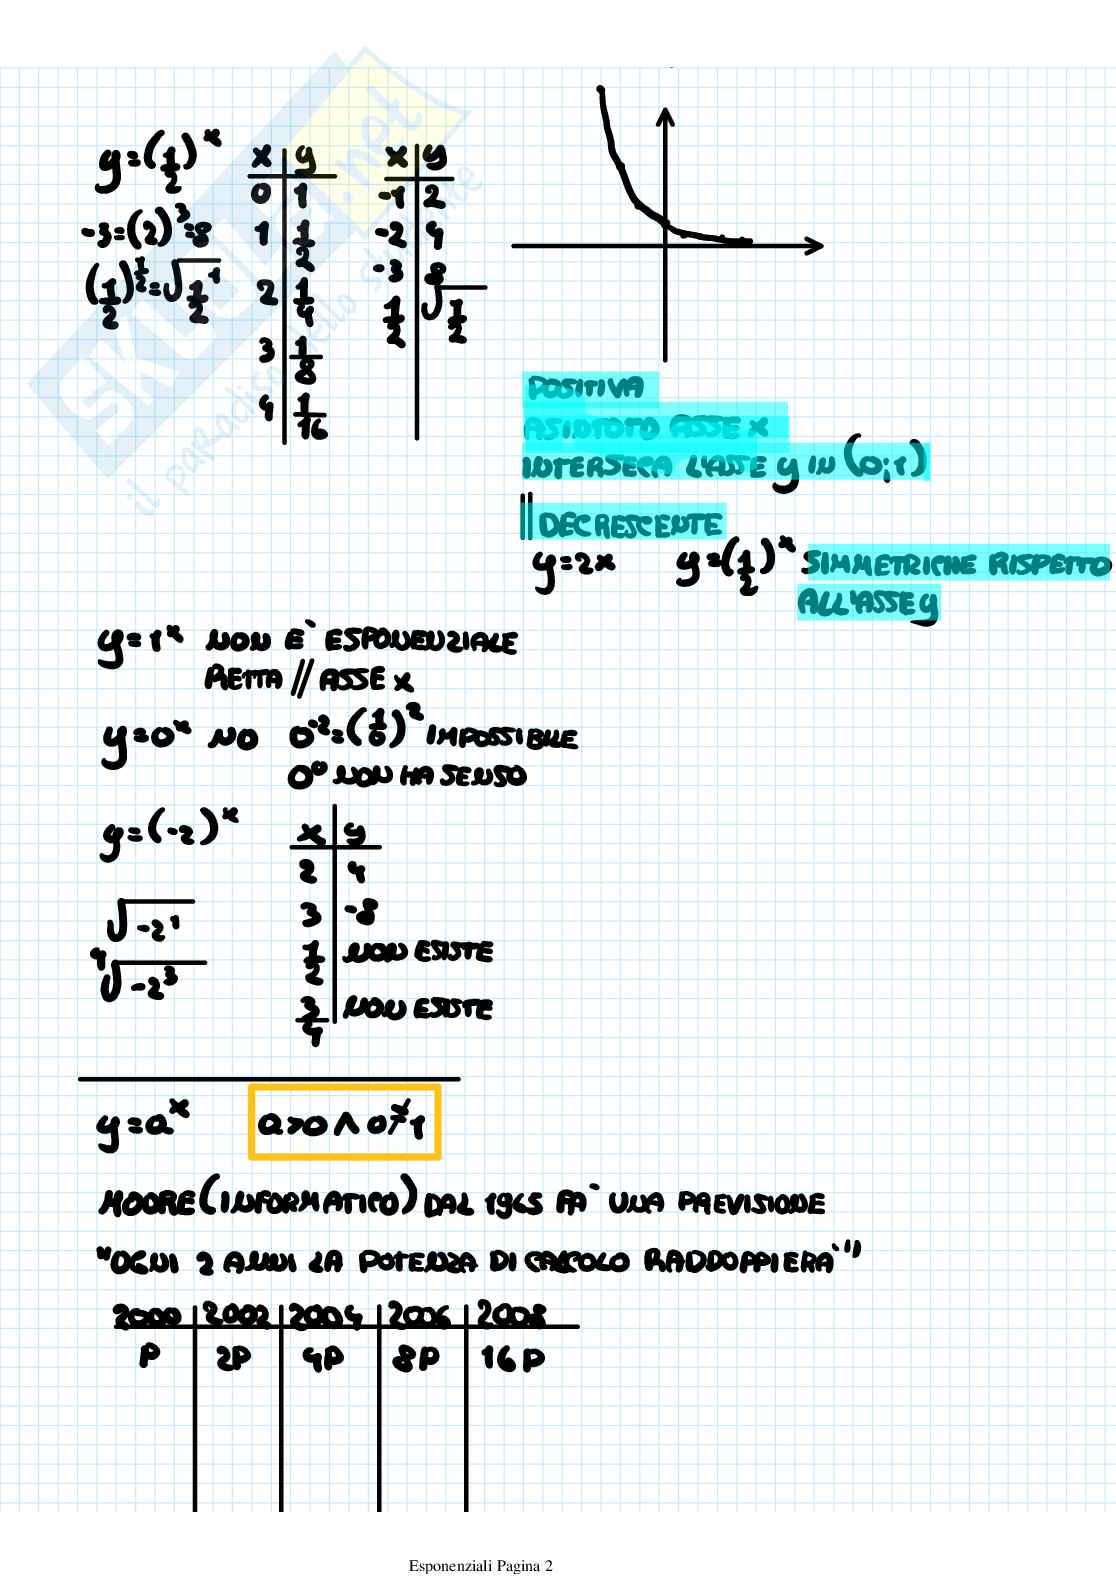 y=(1/2)^x
-3=(2)^3=8
(1/2)^1/2=√1/2^1
x | y
0 | 1
1 | 1/2
2 | 1/4
3 | 1/8
4 | 1/16
x | y
-1 | 2
-2 | 4
-3 | 8
1/2 | √1/2
POSITIVA
ASINTOTO ASSE X
INTERSECA L'ASSE y IN (0;1)
|| DECRESCENTE
y=2x y=(1/2)^x SIMMETRICHE RISPETTO
ALL'ASSE y
y=1^x NON E` ESPONENZIALE
RETTA // ASSE x
y=0^x NO 0^-2=(1/0)^2 IMPOSSIBILE
0^0 NON HA SENSO
y=(-2)^x
√-2^1
4√-2^3
x | y
2 | 4
3 | -8
1/2 | NON ESISTE
3/4 | NON ESISTE
y=a^x a>0 ∧ a≠1
MOORE (INFORMATICO) DAL 1965 FA` UNA PREVISIONE
"OGNI 2 ANNI LA POTENZA DI CALCOLO RADDOPPIERA`"
2000 | 2002 | 2004 | 2006 | 2008
P | 2P | 4P | 8P | 16P
SKUOLA.net
il paradiso dello studente
Esponenziali Pagina 2